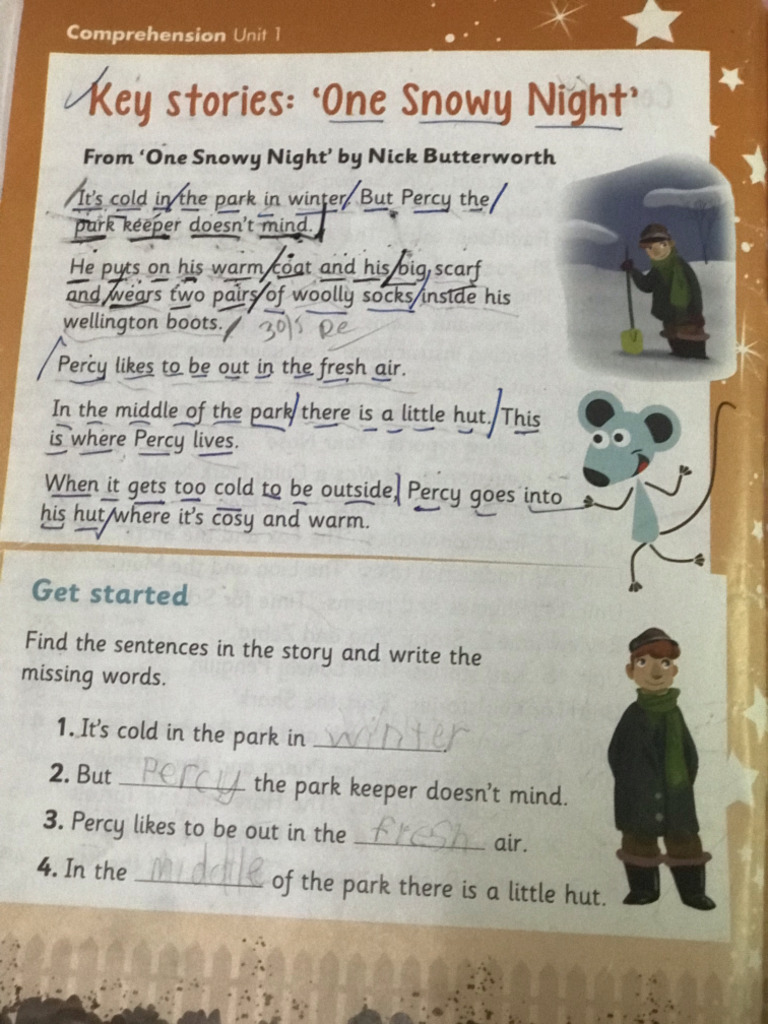 Comprehension Unit 1
Key stories: ‘One Snowy Night’
From ‘One Snowy Night’ by Nick Butterworth
It’s cold in the park in winter. But Percy the
park keeper doesn’t mind.
He puts on his warm coat and his big, scarf
and wears two pairs of woolly socks inside his
wellington boots.
Percy likes to be out in the fresh air.
In the middle of the park there is a little hut. This
is where Percy lives.
When it gets too cold to be outside, Percy goes into
his hut where it’s cosy and warm.
Get started
Find the sentences in the story and write the
missing words.
1. It’s cold in the park in winter.
2. But Percy the park keeper doesn’t mind.
3. Percy likes to be out in the fresh air.
4. In the middle of the park there is a little hut.